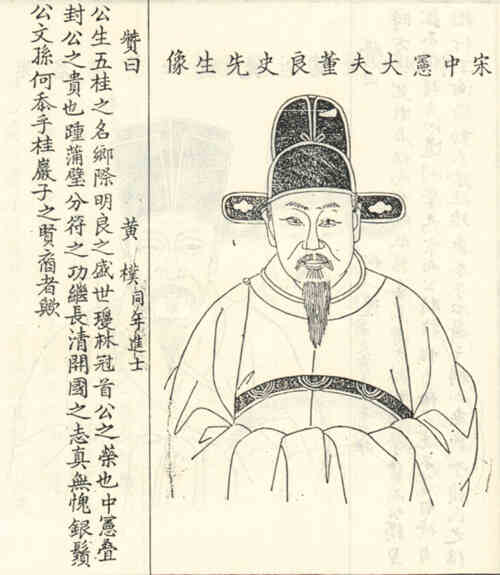 宋中憲大夫董良史先生像
贊曰 黃樸 同年進士
公生五桂之名鄉際明良之盛世瓊林冠首公之榮也中憲疊
封公之貴也踵蒲璧分符之功繼長清開國之志真無愧銀鬚
公文孫何忝乎桂巖子之賢裔者歟